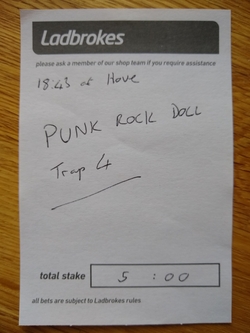 Ladbrokes
please ask a member of our shop team if you require assistance
18:43 at Hove
PUNK ROCK DOLL
Trap 4
total stake 5 : 00
all bets are subject to Ladbrokes rules